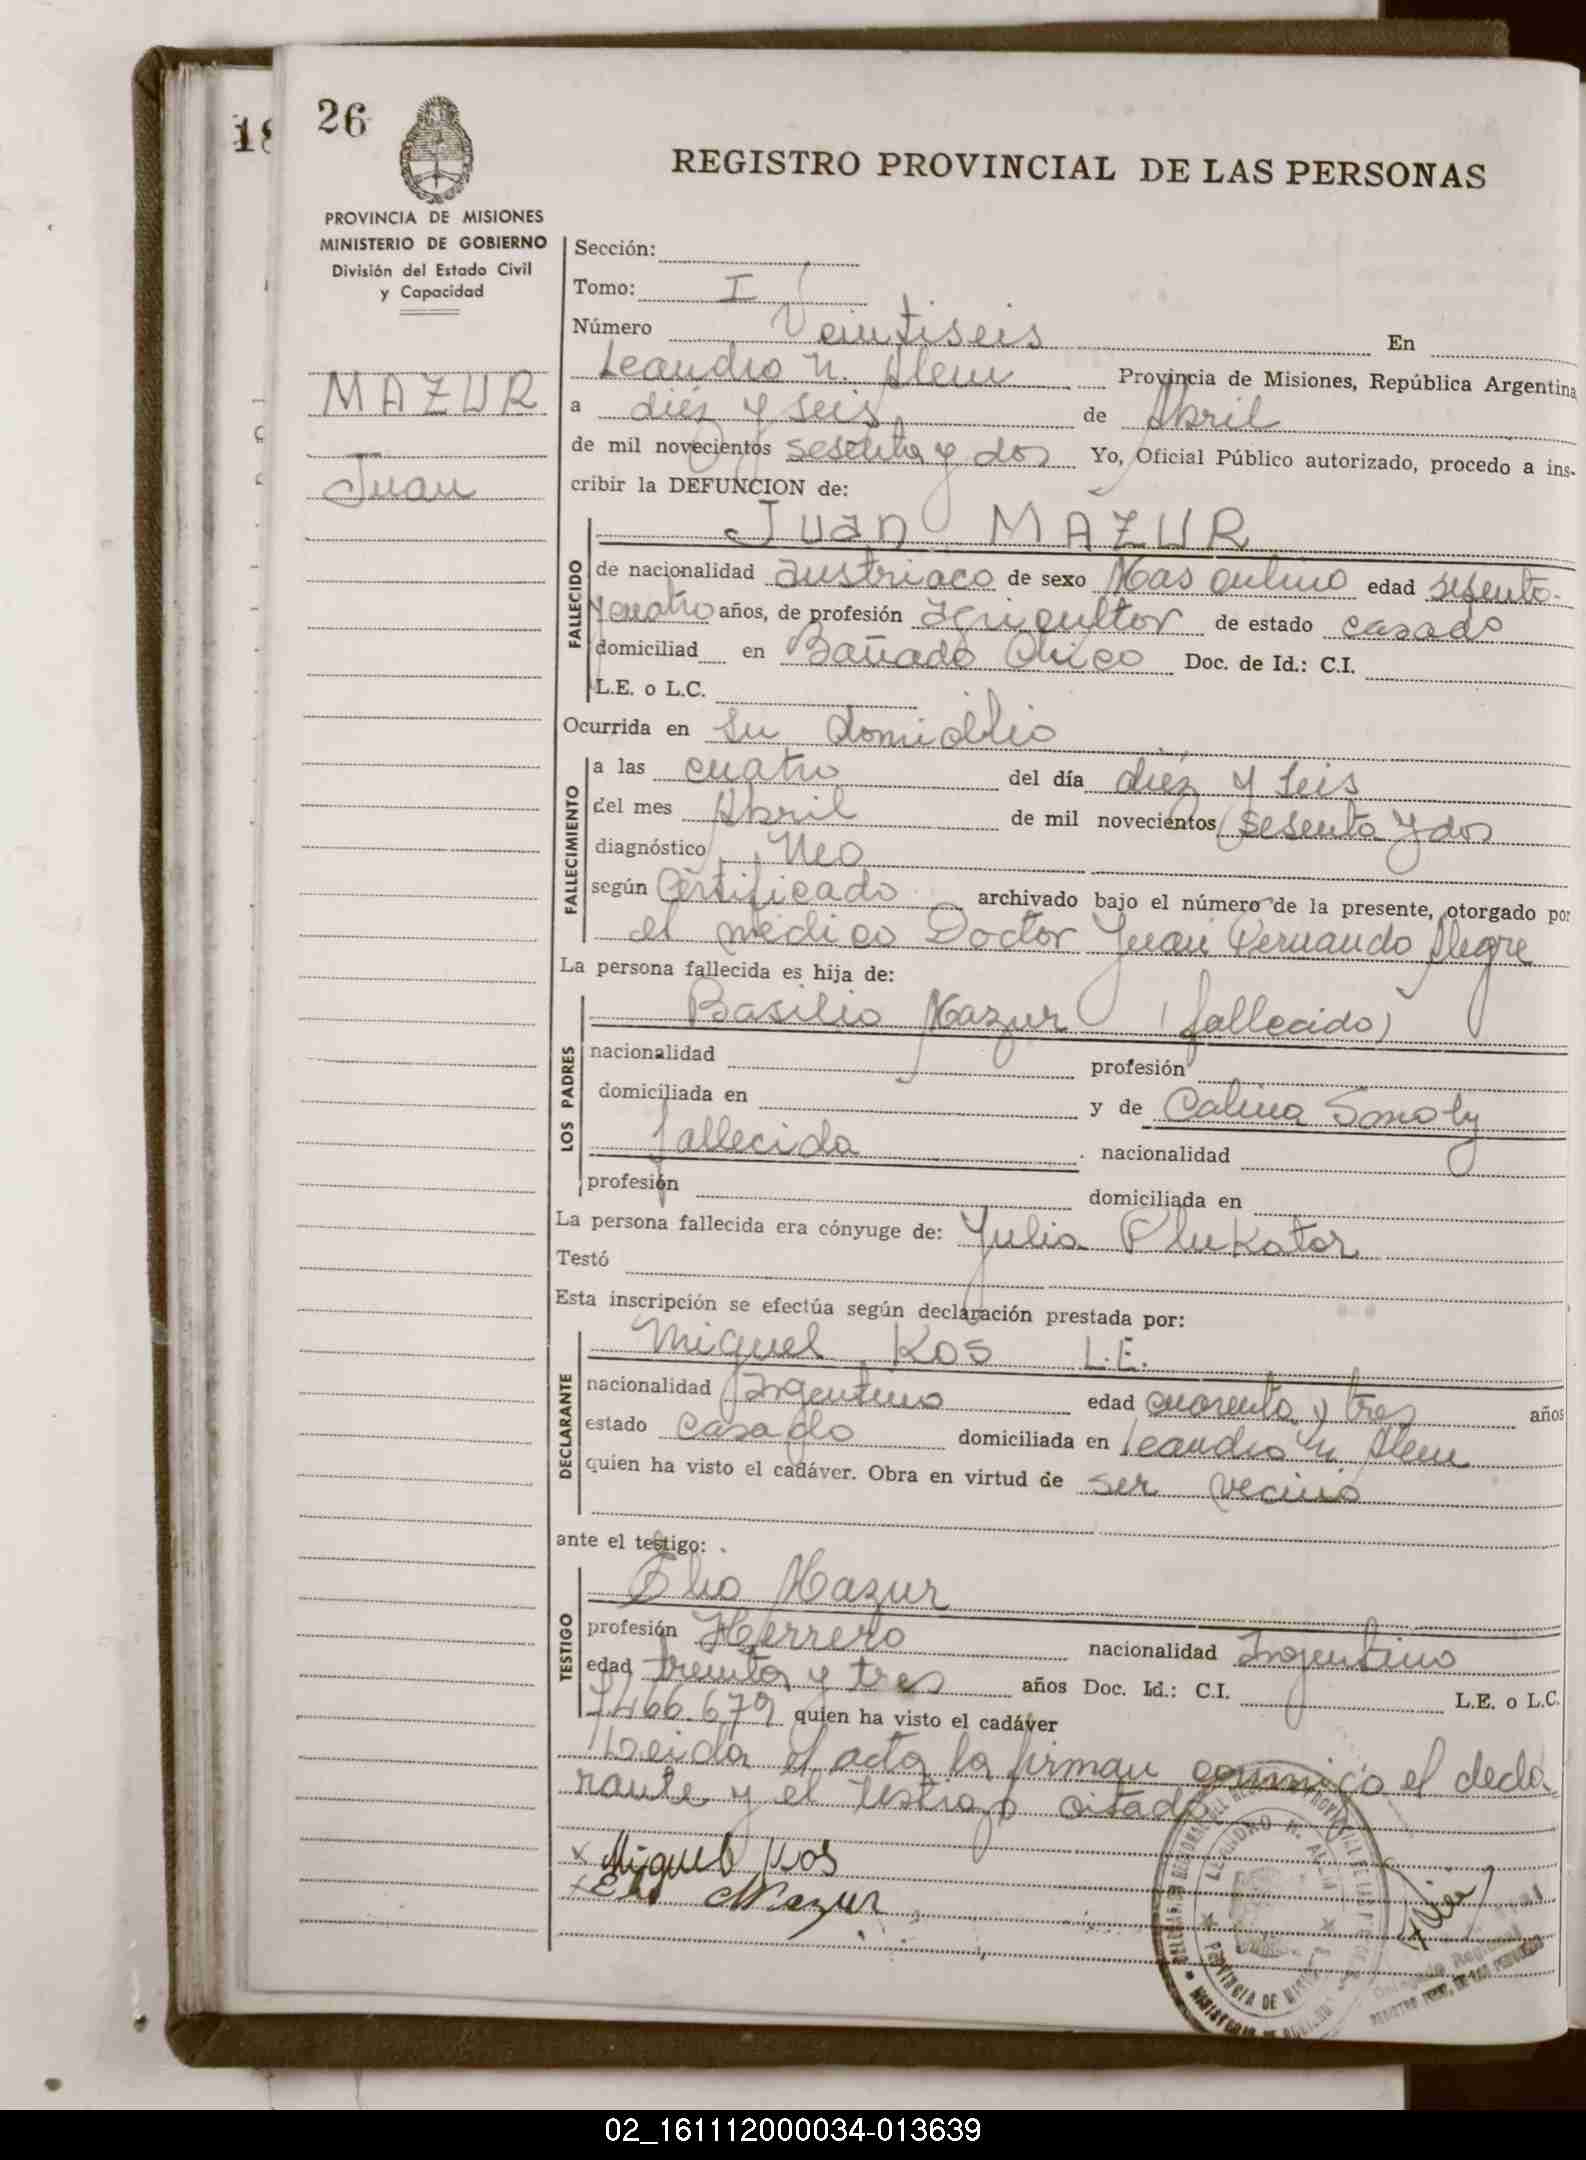 26
18
REGISTRO PROVINCIAL DE LAS PERSONAS
PROVINCIA DE MISIONES
MINISTERIO DE GOBIERNO
División del Estado Civil
y Capacidad
MAZUR
Juan
Sección:
Tomo: I
Número Veintiseis En
Leandro N. Alem Provincia de Misiones, República Argentina
a diez y seis de Abril
de mil novecientos sesenta y dos Yo, Oficial Público autorizado, procedo a ins-
cribir la DEFUNCION de:
Juan MAZUR
FALLECIDO
de nacionalidad austriaco de sexo Masculino edad sesenta
y cuatro años, de profesión agricultor de estado casado
domiciliad en Bañado Chico Doc. de Id.: C.I.
L.E. o L.C.
Ocurrida en su domicilio
FALLECIMIENTO
a las cuatro del día diez y seis
del mes Abril de mil novecientos sesenta y dos
diagnóstico Neo
según Certificado archivado bajo el número de la presente, otorgado por
el médico Doctor Juan Fernando Alegre
La persona fallecida es hija de:
LOS PADRES
Basilio Mazur (fallecido)
nacionalidad profesión
domiciliada en y de Calina Smoly
fallecida nacionalidad
profesión domiciliada en
La persona fallecida era cónyuge de: Julia Plukator
Testó
Esta inscripción se efectúa según declaración prestada por:
DECLARANTE
Miguel Kos L.E.
nacionalidad Argentino edad cuarenta y tres años
estado casado domiciliada en Leandro N. Alem
quien ha visto el cadáver. Obra en virtud de ser vecino
ante el testigo:
TESTIGO
Elio Mazur
profesión Herrero nacionalidad Argentino
edad treinta y tres años Doc. Id.: C.I. L.E. o L.C.
7.466.679 quien ha visto el cadáver
Leida el acta la firman conmigo el decla
rante y el testigo citado
x Miguel Kos
x Elio Mazur
LEANDRO N. ALEM
PROVINCIA DE MISIONES
Delegado Regional
02_161112000034-013639